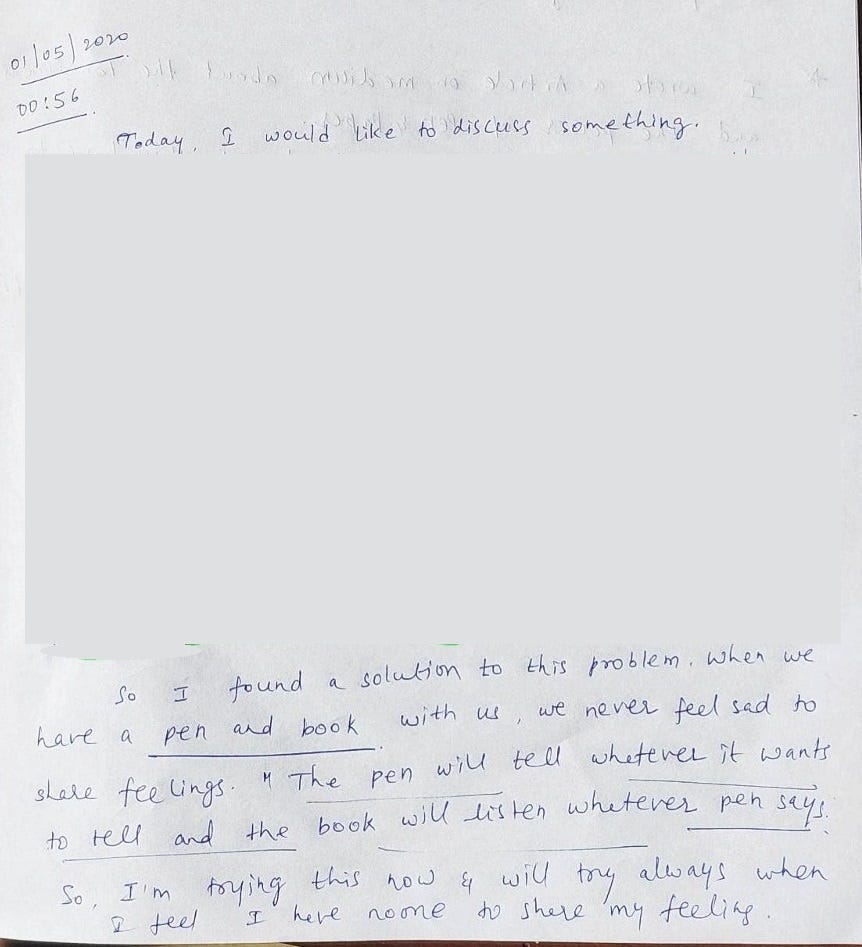 01/05/2020
00:56.
Today, I would like to discuss something.
So I found a solution to this problem. When we
have a pen and book with us, we never feel sad to
share feelings. " The pen will tell whatever it wants
to tell and the book will listen whatever pen says.
So, I'm trying this now & will try always when
I feel I have noone to share my feeling.